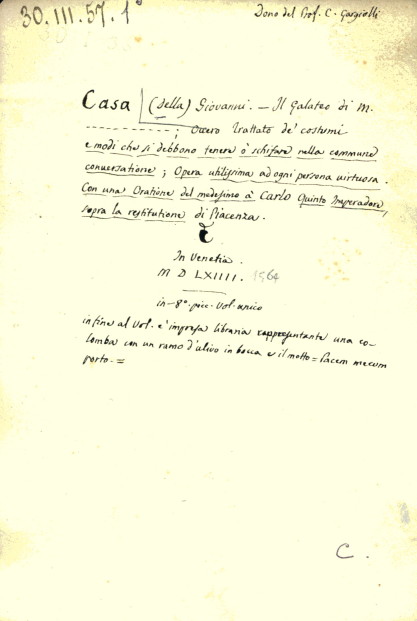 30.III.57.1°
Dono del Prof. C. Gargiolli
Casa (Della) Giovanni. — Il Galateo di M.
- - - - - - - - - - - - - ; Overo trattato de' costumi
e modi che si debbono tenere ò schifare nella commune
conversatione ; Opera utilissima ad ogni persona virtuosa.
Con una Oratione del medesimo à Carlo Quinto Imperadore,
sopra la restitutione di Piacenza.
In Venetia.
M D LXIIII. 1564
in-8°. picc. Vol. unico
in fine al Vol. e' impresa libraria rappresentante una co-
lomba con un ramo d'ulivo in bocca e il motto = Pacem mecum
porto. =
C.